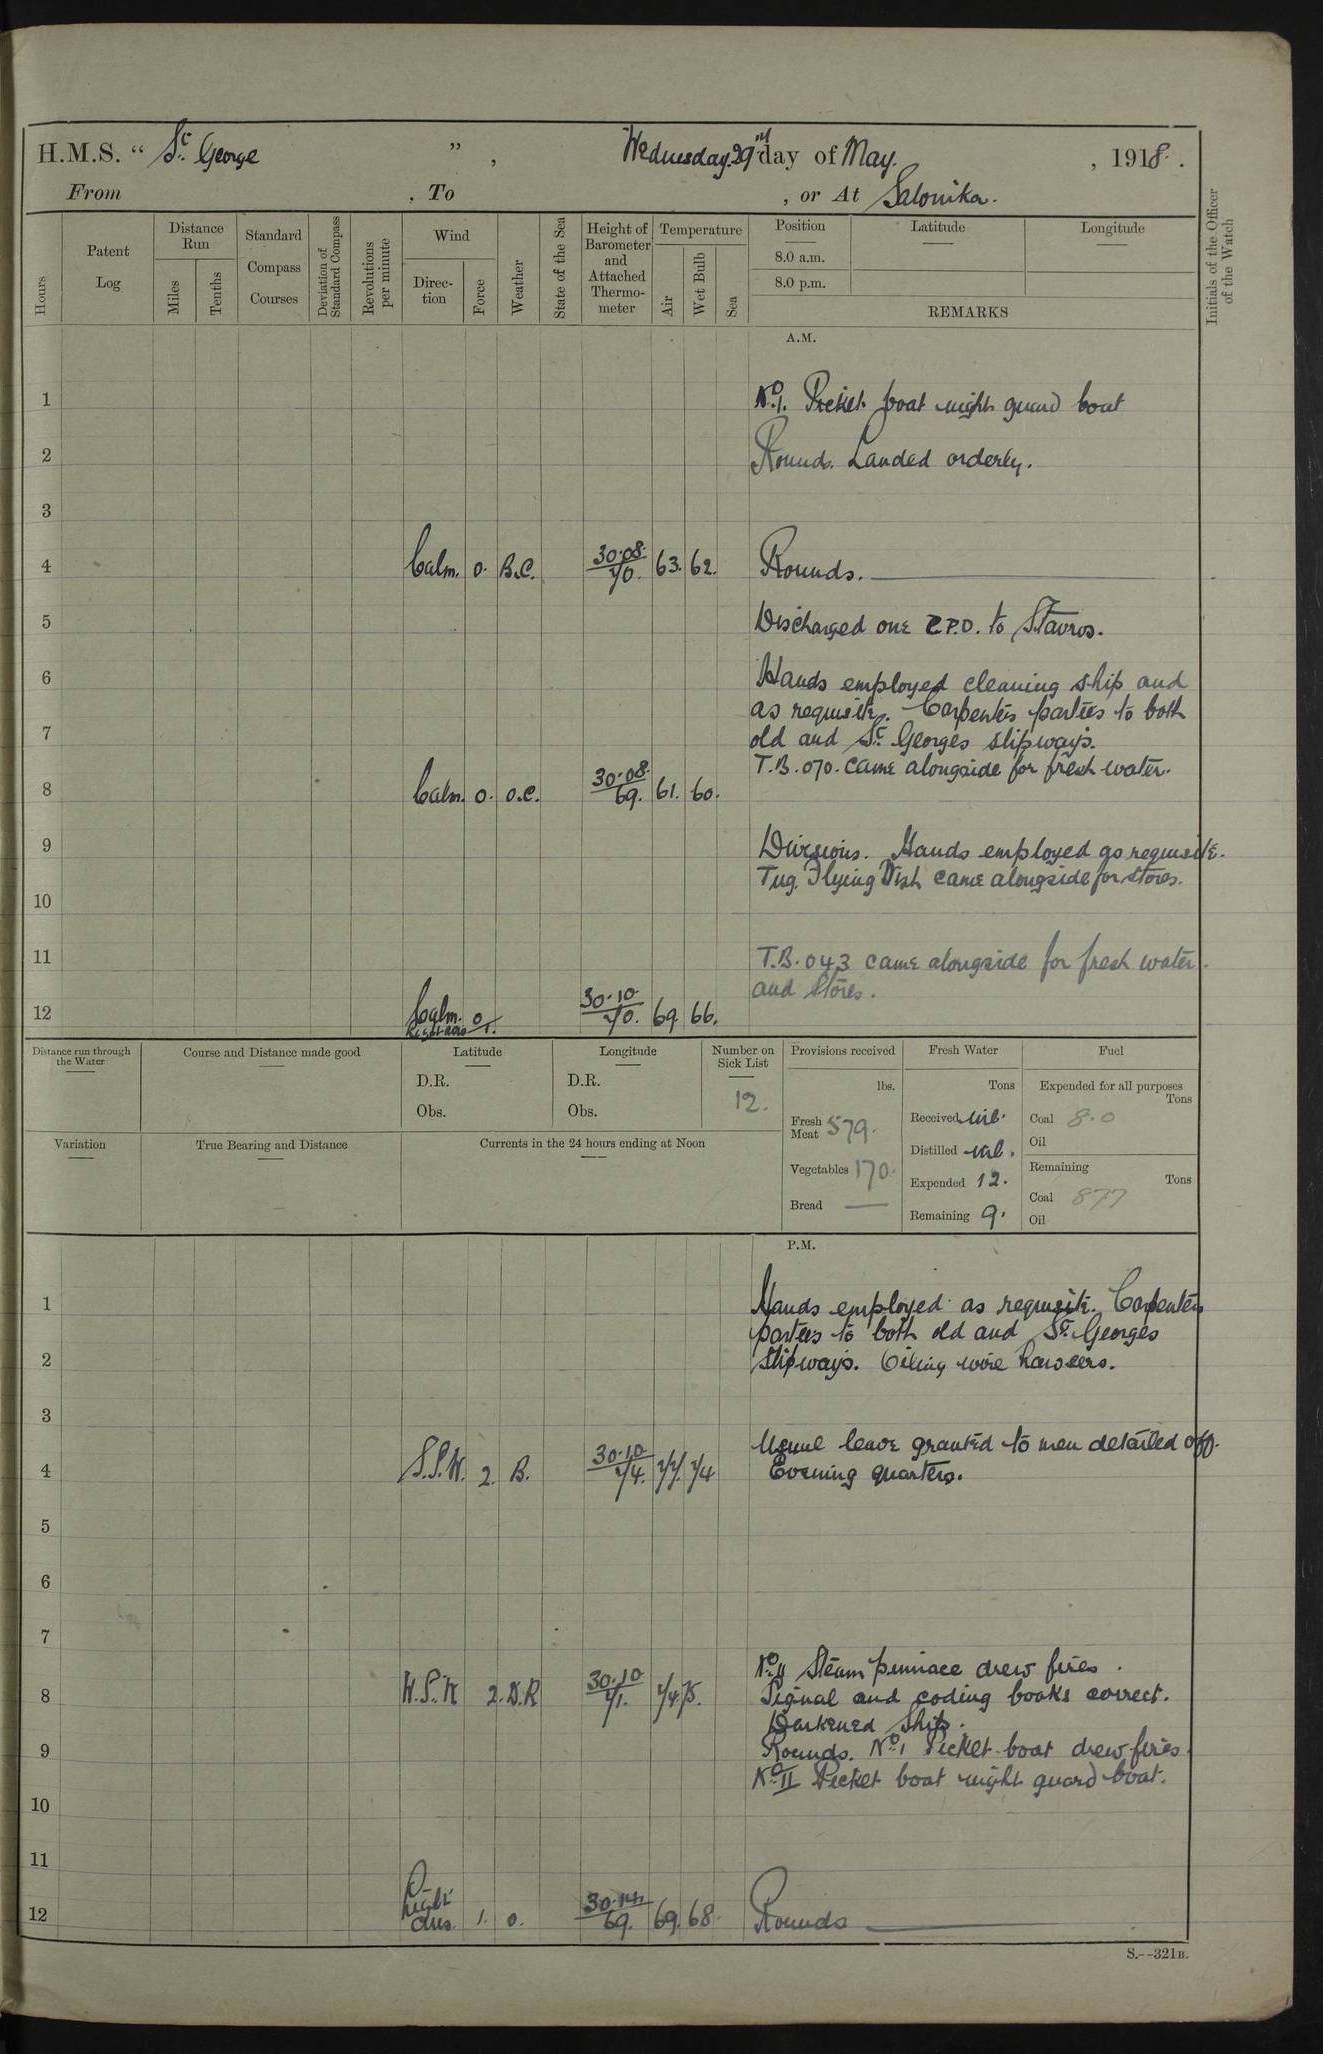 H.M.S. “ St. George ” , Wednesday. 29th day of May. , 1918 .
From , To , or At Salonika.
Hours
Patent Log
Distance Run
Miles
Tenths
Standard Compass Courses
Deviation of Standard Compass
Revolutions per minute
Wind
Direction
Force
Weather
State of the Sea
Height of Barometer and Attached Thermometer
Temperature
Air
Wet Bulb
Sea
Position
8.0 a.m.
8.0 p.m.
Latitude
Longitude
REMARKS
Initials of the Officer of the Watch
A.M.
1 No. 1. Picket boat night guard boat
2 Rounds. Landed orderly.
3
4 Calm. 0. B.C. 30.08. 70. 63. 62. Rounds.
5 Discharged one C.P.O. to Stavros.
6 Hands employed cleaning ship and
as requisite. Carpenters parties to both
7 old and St. Georges slipways.
T.B. 070. came alongside for fresh water.
8 Calm. 0. o.c. 30.08. 69. 61. 60.
9 Divisions. Hands employed as requisite.
Tug. Flying Fish came alongside for stores.
10
11 T.B. 043 came alongside for fresh water
and stores.
12 Calm. 0 30.10. 70. 69. 66.
1.
Distance run through the Water
Course and Distance made good
Latitude
D.R.
Obs.
Longitude
D.R.
Obs.
Number on Sick List
12.
Provisions received
lbs.
Fresh Meat 579.
Vegetables 170.
Bread —
Fresh Water
Tons
Received nil.
Distilled nil.
Expended 12.
Remaining 9.
Fuel
Expended for all purposes
Tons
Coal 8.0
Oil
Remaining
Tons
Coal 877
Oil
Variation
True Bearing and Distance
Currents in the 24 hours ending at Noon
P.M.
1 Hands employed as requisite. Carpenters
parties to both old and St. Georges
2 slipways. Oiling wire hawsers.
3
Usual leave granted to men detailed off.
4 S.S.W. 2. B. 30.10 74. 77. 74 Evening quarters.
5
6
7
No. II Steam pinnace drew fires.
8 W.S.W 2. 30.10 71. 74. 75. Signal and coding books correct.
Darkened Ship.
9 Rounds. No. 1 Picket boat drew fires.
No. II Picket boat night guard boat.
10
11
12 Light airs. 1. o. 30.14. 69. 69. 68. Rounds
S.--321B.